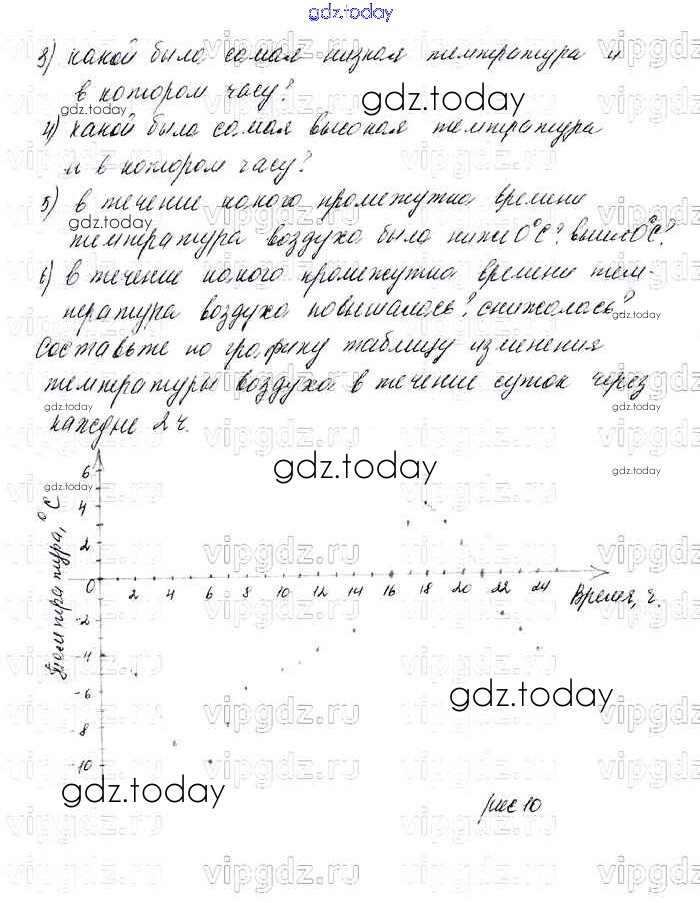 gdz.today
3) какой была самая низкая температура и
в котором часу?
gdz.today
gdz.today
4) какой была самая высокая температура
и в котором часу?
5) в течение какого промежутка времени
gdz.today
температура воздуха была ниже 0°С? выше 0°С?
6) в течение какого промежутка времени тем-
пература воздуха повышалось? снижалось?
gdz.today
Составьте по графику таблицу изменения
температуры воздуха в течение суток через
gdz.today
gdz.today
каждые 2 ч.
gdz.today
gdz.today
gdz.today
Температура, °С
6
4
2
0
-2
-4
-6
-8
-10
2 4 6 8 10 12 14 16 18 20 22 24 Время, ч.
gdz.today
gdz.today
рис 10
vipgdz.ru